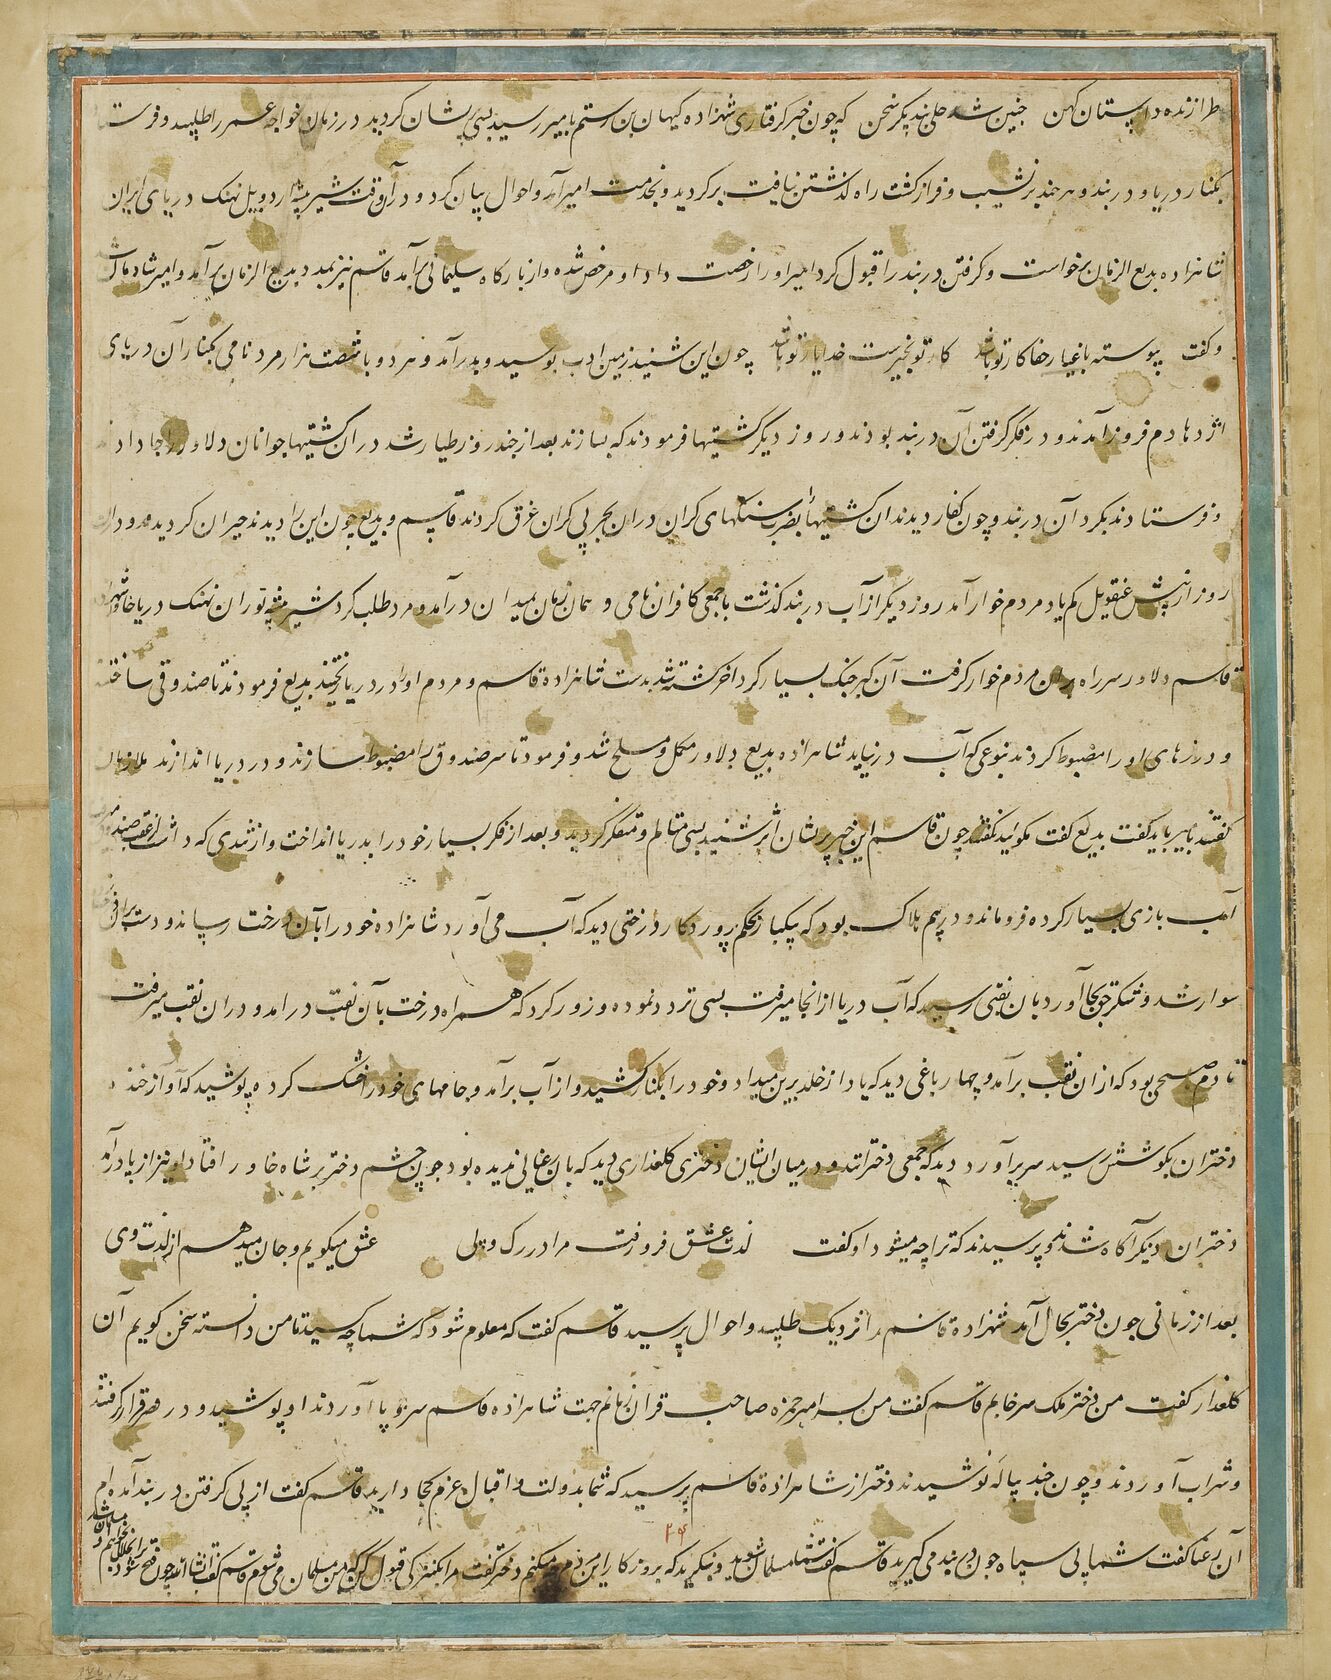 طرازنده داستان کهن چنین شد حلی بند پکر سخن که چون خبر گرفتاری شهزاده کیهان بن رستم بامیر رسید بسی پریشان گردید در زمان خواجه عمر را طلبید و فرستاد
بکنار دریا و دربند و هرچند بر نشیب و فراز گشت راه گذشتن نیافت برگردید و بخدمت امیر آمد و احوال بیان کرد و در آن وقت شیر بیشه اردوبیل نهنک دریای ایران
شاهزاده بدیع الزمان برخواست و گرفتن دربند را قبول کرد امیر او را رخصت داد او مرخص شده و از بارگاه سلیمانی برآمد قاسم نیز بمدد بدیع الزمان برآمد و امیر شادمان
و گفت پیوسته باغیار جفا کار تو باشد کار تو بخیرست خدا یار تو باشد چون این شنید زمین ادب بوسید و بدر آمد و هر دو با شصت هزار مرد نامی بکنار آن دریای
اژدهادم فرود آمدند و در فکر گرفتن آن دربند بودند و روز دیگر کشتیها فرمودند که بسازند بعد از چند روز طیار شد در ان کشتیها جوانان دلاور را جا دادند
و فرستادند بگرد آن دربند و چون کفار دیدند ان کشتیها را بضرب سنگهای گران در ان بحر بی کران غرق کردند قاسم و بدیع چون این را دیدند حیران گردیدند
روز از پیش عنقویل کم یاد مردم خوار آمد روز دیگر از آب دربند گذشت با جمعی کافران نامی و همان زمان بمیدان درآمد و مرد طلب کرد شیر بیشه توران نهنک دریا
قاسم دلاور سر راه بران مردم خوار گرفت آن گبر جنک بسیار کرد آخر کشته شد بدست شاهزاده قاسم و مردم او را در دریا ریختند بدیع فرمودند تا صندوقی ساختند
و درزهای او را مضبوط کردند بنوعی که آب در نیاید شاهزاده بدیع دلاور مکمل و مسلح شد و فرمود تا سر صندوق را مضبوط سازند و در دریا اندازند ملازمان
گفتند بامیر باید گفت بدیع گفت مگوئید نگفتند چون قاسم این خبر پریشان اثر شنید بسی متالم و متفکر گردید و بعد از فکر بسیار خود را بدریا انداخت و از تندی که داشت از عقب صندوق
آب بازی بسیار کرده فرو ماند و در بیم هلاک بود که یکبار بحکم پروردکار درختی دید که آب می آورد شاهزاده خود را بآن درخت رسانید و دست بران
سوار شد و شکر حق بجا آورد بان نقبی رسید که آب دریا از انجا میرفت بسی تردد نموده و زور کرد که همراه درخت بآن نقب درامد و در ان نقب میرفت
تا دم صبحی بود که از ان نقب برآمد و چهار باغی دید که یاد از خلد برین میداد و خود را بکنار کشید و از آب برآمد و جامهای خود را خشک کرده پوشید که آواز خنده
دختران بگوشش رسید سر برآورد دید که جمعی دخترانند و در میان ایشان دختری گلعذاری دید که بان رعنائی ندیده بود چون چشم دختر بر شاه خاور افتاد او نیز از پا درآمد
دختران دیگر آگاه شدند و پرسیدند که ترا چه میشود او گفت لذت عشق فرو رفت مرا در رک و پی عشق میگویم و جان میدهم از لذت وی
بعد از زمانی چون دختر بحال آمد شهزاده قاسم را نزدیک طلبید و احوال پرسید قاسم گفت که معلوم شود که شما چه کسید تا من دانسته سخن گویم آن
گلعذار گفت من دختر ملک سرخابم قاسم گفت من پسر امیر حمزه صاحب قرانم جهت شاهزاده قاسم سر و پا آوردند او پوشید و در قصر قرار گرفتند
و شراب آوردند و چون چند پیاله نوشیدند دختر از شاهزاده قاسم پرسید که شما بدولت و اقبال عزم کجا دارید قاسم گفت از پی گرفتن دربند آمده ام
آن رعنا گفت شما بی سپاه چون دربند می گیرید قاسم گفت شما مسلمان شوید و بنگرید که بروز کار این مردم چه میکنم دختر گفت مرا بکنیزکی قبول کن که من مسلمان می شوم قاسم گفت انشاالله چون فتح شود